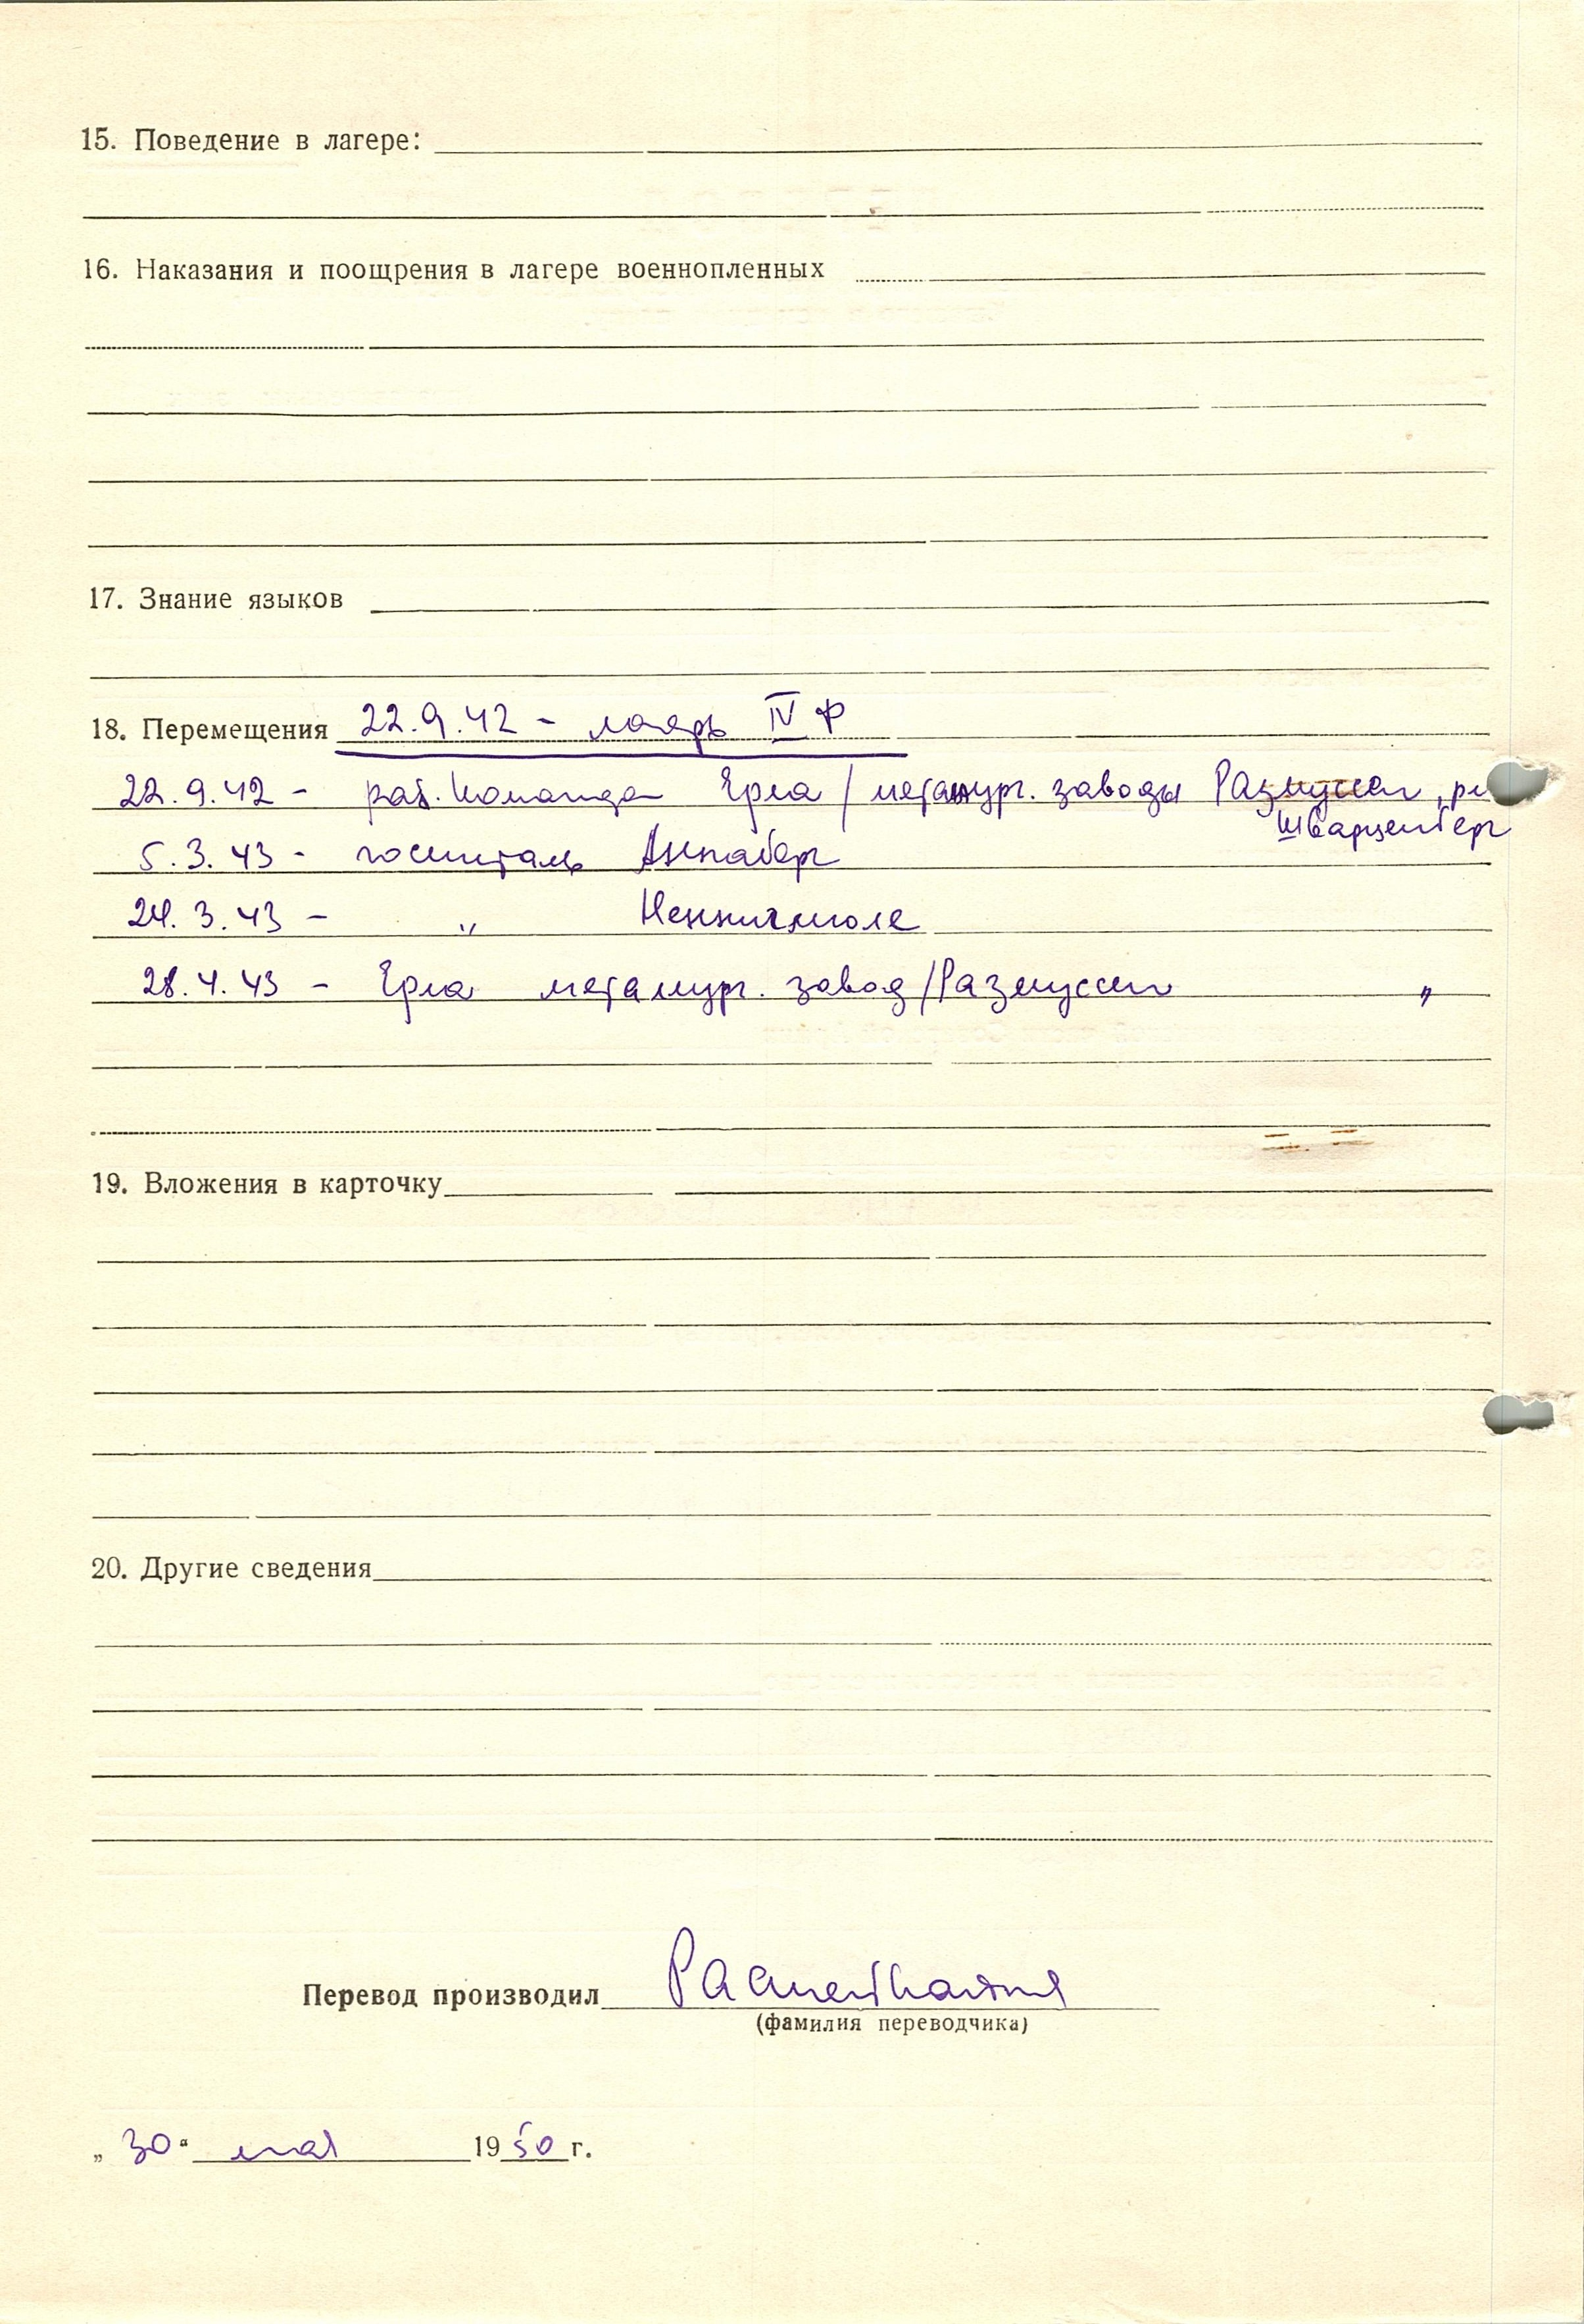 15. Поведение в лагере:
16. Наказания и поощрения в лагере военнопленных
17. Знание языков
18. Перемещения 22.9.42 - лагерь IV Ф
22.9.42 - раб. команда Ерла / металург. заводы Размуссен,
Шварценберг
5.3.43 - госпиталь Аннаберг
24.3.43 - „
28.4.43 - Ерла металург. завод/Размуссен „
19. Вложения в карточку
20. Другие сведения
Перевод производил
(фамилия переводчика)
„30“ мая 1950 г.